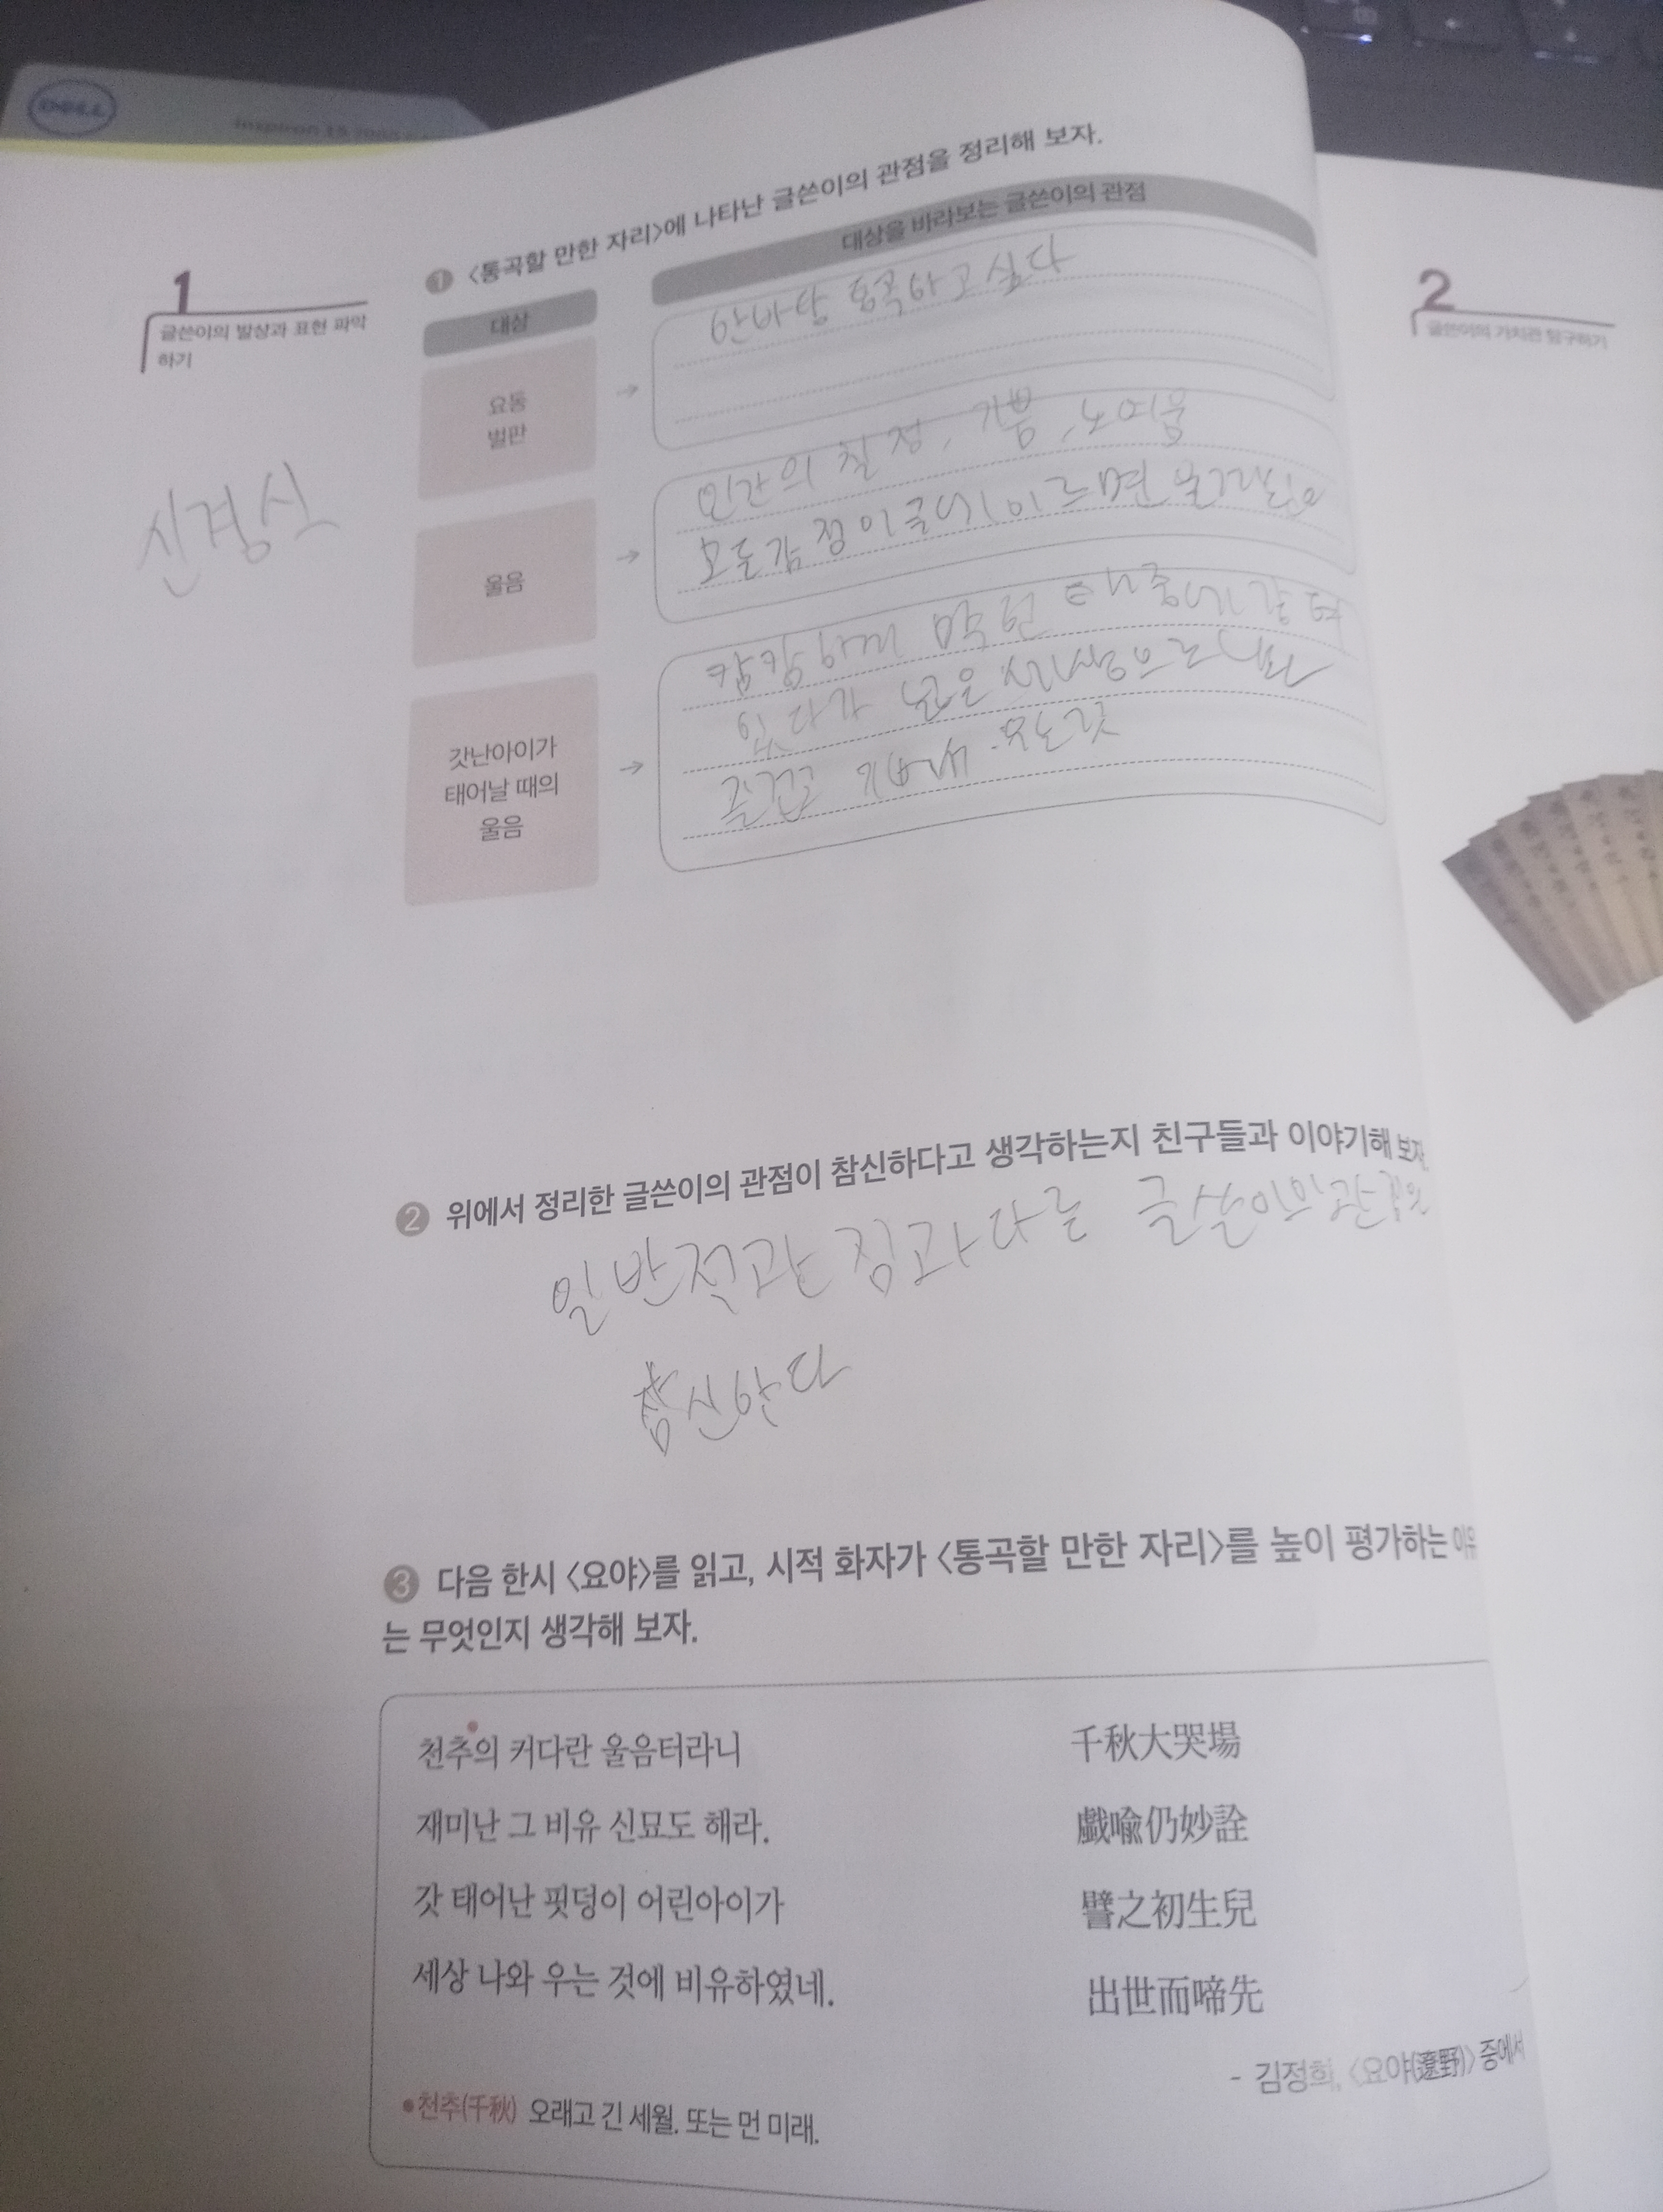 DELL
Inspiron 15
1
글쓴이의 발상과 표현 파악
하기
신경식
❶ <통곡할 만한 자리>에 나타난 글쓴이의 관점을 정리해 보자.
대상
대상을 바라보는 글쓴이의 관점
요동
벌판
→
한바탕 통곡하고 싶다
울음
→
인간의 칠정, 기쁨, 노여움
모든감정이 극에 이르면 울게된다
갓난아이가
태어날 때의
울음
→
캄캄하게 막힌 태중에 갇혀
있다가 넓은 세상으로 나와
즐겁고 기뻐서 우는것
❷ 위에서 정리한 글쓴이의 관점이 참신하다고 생각하는지 친구들과 이야기해 보자
일반적관점과다른 글쓴이의관점은
참신하다
❸ 다음 한시 <요야>를 읽고, 시적 화자가 <통곡할 만한 자리>를 높이 평가하는 이유
는 무엇인지 생각해 보자.
천추의 커다란 울음터라니 千秋大哭場
재미난 그 비유 신묘도 해라. 戱喩仍妙詮
갓 태어난 핏덩이 어린아이가 譬之初生兒
세상 나와 우는 것에 비유하였네. 出世而啼先
- 김정희, <요야(遼野)> 중에서
•천추(千秋) 오래고 긴 세월. 또는 먼 미래.
2
글쓴이의 가치관 탐구하기